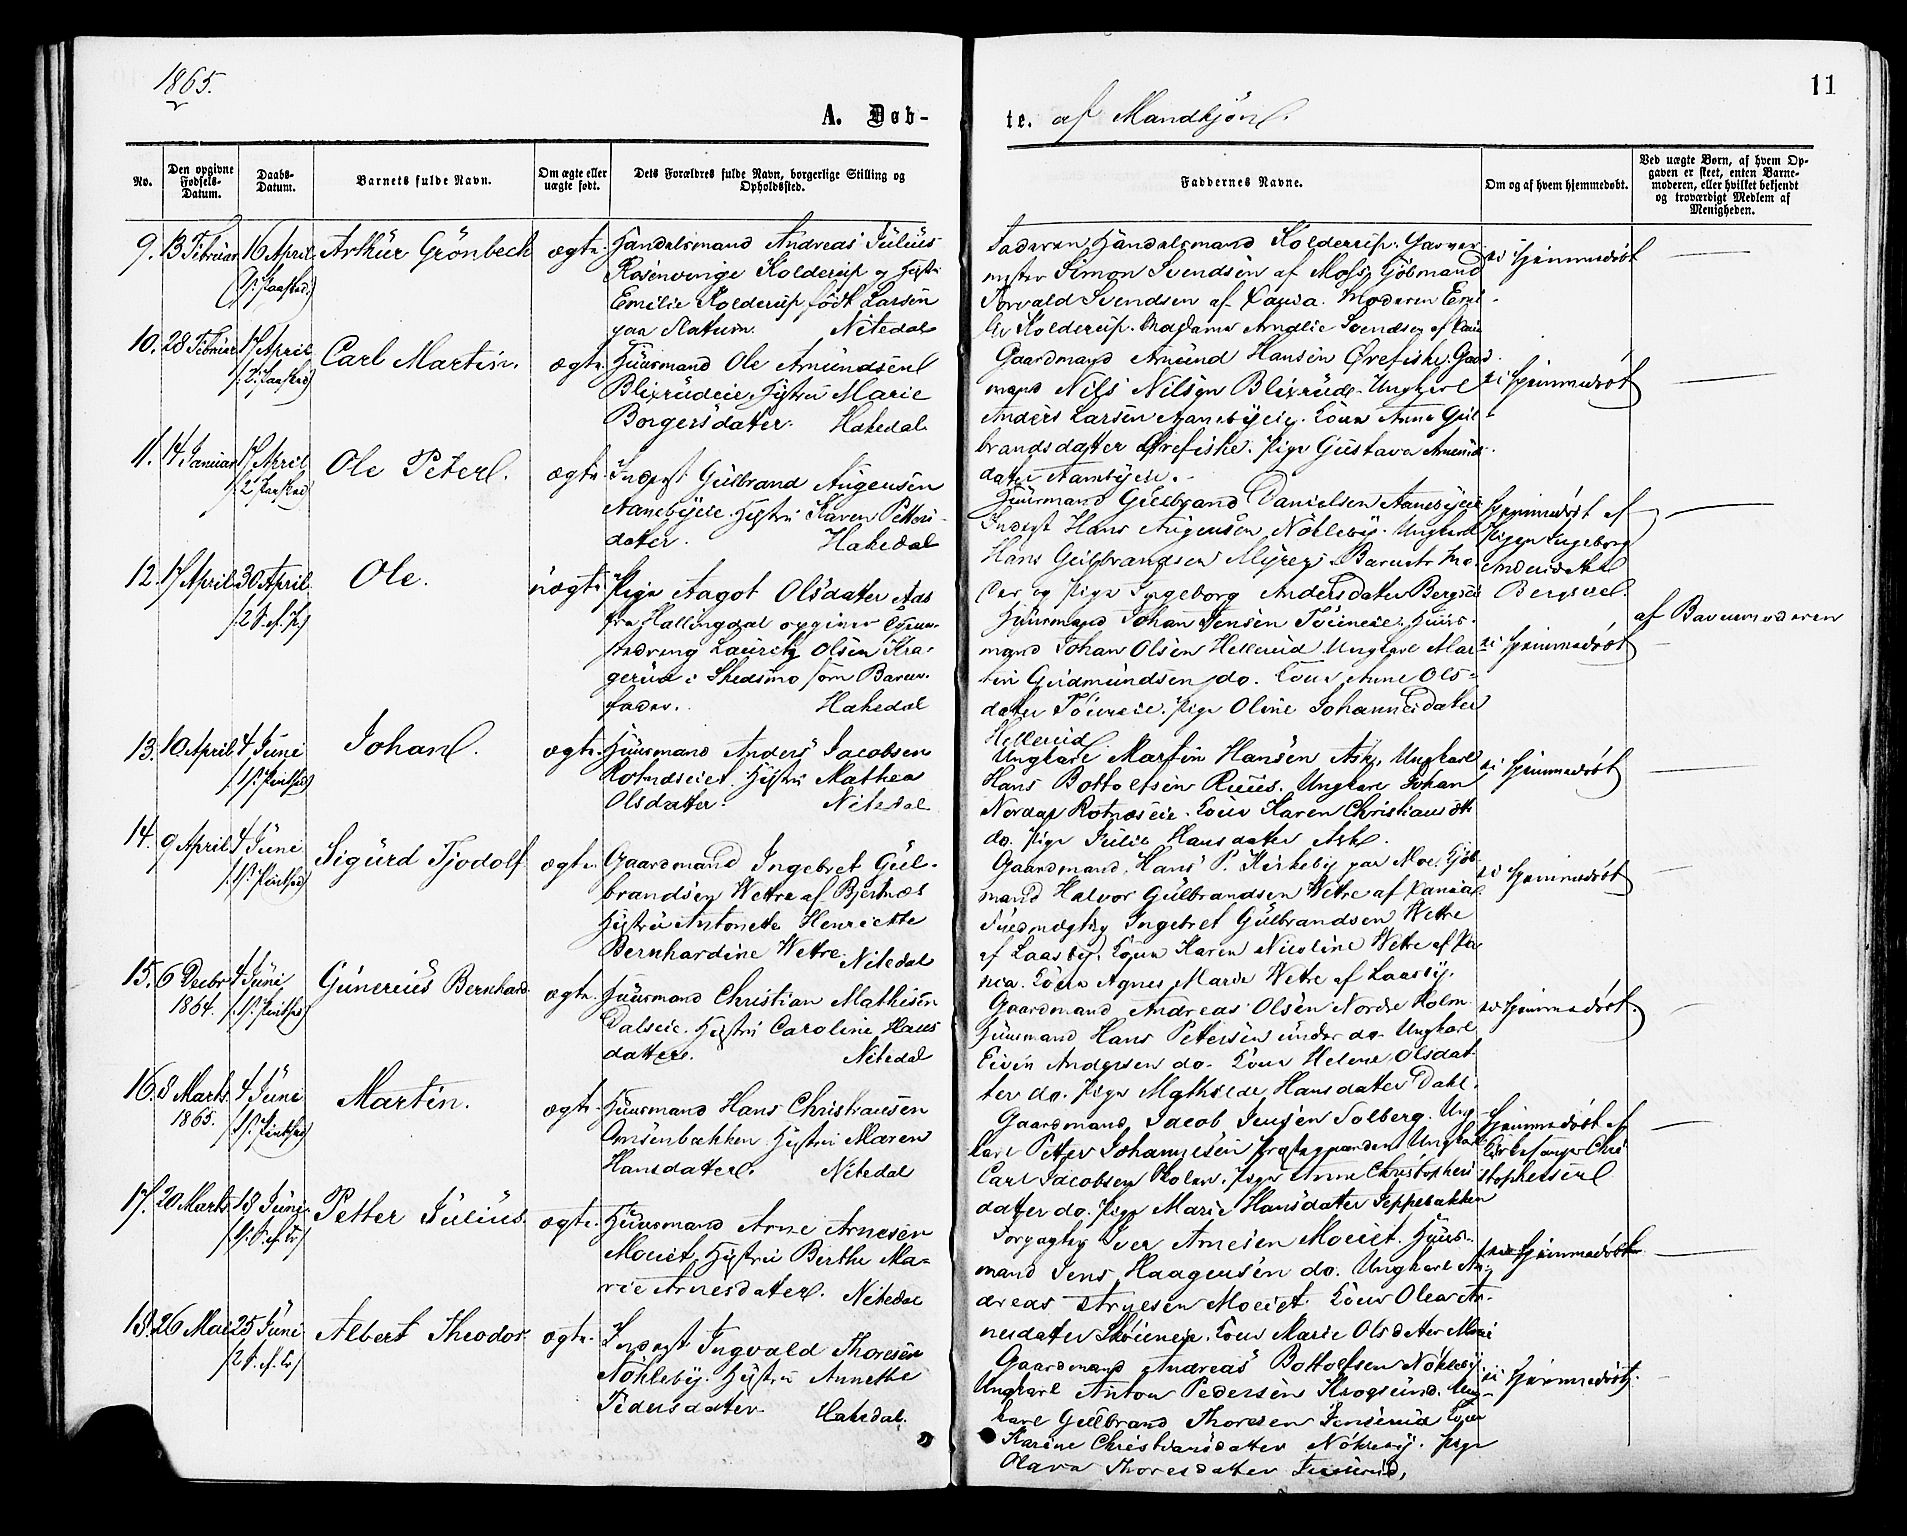 1865.
11
A. Døb-
te. af Mandkjön.
No.
Den opgivne Fødsels-Datum.
Daabs-Datum.
Barnets fulde Navn.
Om ægte eller uægte født.
Dets Forældres fulde Navn, borgerlige Stilling og Opholdssted.
Faddernes Navne.
Om og af hvem hjemmedøbt.
Ved uægte Børn, af hvem Opgaven er skeet, enten Barnemoderen, eller hvilket bekjendt og troværdigt Medlem af Menigheden.
9. 13 Februar 16 April Arthür Grönbeck ægte. Handelsmand Andreas Jülius
Rosenvinge Kolderup og Hustru
Emilie Kolderup født Larsen
paa Slatum. Nitedal
Faderen Handelsmand Kolderup. Garver-
mester Simon Svendsen af Moss, Kjöbmand
Torvald Svendsen af Vania. Moderen Emi-
lie Kolderup. Madame Amalie Svendsen af Vania
ei hjemmedöbt
10. 28 Februar 17 April Carl Martin. ægte. Huusmand Ole Amündsen
Blixrüdeie. Hustru Marie
Borgersdater. Hakedal
Gaardmand Amund Hansen Örefiske. Gaard-
mand Nils Nilsen Blixrüd. Ungkarl
Anders Larsen Aanebyeie. Kone Anne Gul-
brandsdatter Örefiske. Pige Gustava Amunds-
datter Aanebyeie.
ei hjemmedöbt
11. 14 Januar 17 April Ole Peter. ægte. Inderst Gülbrand Aügensen
Aanebyeie. Hustru Karen Petters-
dater. Hakedal
Huusmand Gülbrand Danielsen Aanebyeie
Inderst Hans Augensen Nökleby. Ungkarl
Hans Gulbrandsen Myrer. Barnets Mo-
der og Pige Ingeborg Andersdater Bergseie
hjemmedöbt af
Pigen Ingeborg
Andersdatter
12. 17 April 30 April Ole. uægte Pige Aagot Olsdater Aas
fra Hallingdal opgiver
Lauritz Olsen Kra-
gerud i Skedsmo som Barne-
fader. Hakedal
Huusmand Johan Jensen Töieneie. Huus-
mand Johan Olsen Hellerud Ungkarl Mar-
tin Gudmündsen do. Kone Anne Ols-
dater Töieneie. Pige Oline Johannesdater
Hellerud.
ei hjemmedöbt
af Barnemoderen
13. 10 April 4 Jüni Johan. ægte. Huusmand Anders Jacobsen
Rotnæseiet. Hustru Mathea
Olsdatter. Nitedal
Ungkarl Martin Hansen Ask, Ungkarl
Hans Bottolfsen Ruus. Ungkarl Johan
Rotnæseie. Kone Karen Christiansdtr
do. Pige Julie Hansdater Ask.
ei hjemmedöbt
14. 9 April 4 Jüni Sigürd Tjodolf ægte. Gaardmand Ingebret Gül-
brandsen Wetre af Bjertnæs
Hustru Antonette Henriette
Bernhardine Wetre. Nitedal
Gaardmand Hans P. Kirkeby paa Moe. Kjöb-
mand Halvor Gülbrandsen Wetre af Vania
Ingebret Gülbrandsen Wetre
af Laasby. Kone Karen Nicoline Wetre af Va-
nia. Kone Agnes Marie Wetre af Laasby.
ei hjemmedöbt
15. 6 Decbr 1864. 4 Jüni Günerius Bernhard. ægte. Huusmand Christian Mathisen
Dalseie. Hustru Caroline Hans
datter. Nitedal
Gaardmand Andreas Olsen Nordre Holm
Huusmand Hans Pettersen under do. Ungkarl
Eivin Andersen do. Kone Helene Olsdat-
ter do. Pige Mathilde Hansdatter Dahl.
ei hjemmedöbt.
16. 8 Marts 1865. 4 Jüni Martin. ægte. Huusmand Hans Christiansen
Ornsenbækken. Hustru Maren
Hansdater. Nitedal
Gaardmand Jacob Jensen Solberg. Ung-
karl Petter Johannesen Præstegaarden. Ungkarl
Carl Jacobsen Holen. Pige Anne Christophers
dater do. Pige Marie Hansdatter Jeppebakken
hjemmedöbt af
Kirkesanger Chri-
stophersen
17. 20 Marts 18 Jüni Petter Jülius. ægte. Huusmand Arne Arnesen
Moeiet. Hustru Berthe Ma-
rie Arnesdater. Nitedal
Forpagter Iver Arnesen Moeiet. Huus-
mand Jens Haagensen do. Ungkarl An-
dreas Arnesen Moeiet. Kone Olea Ar-
nesdater Skoieneie. Kone Marie Olsdater
ei hjemmedöbt
18. 26 Mai 25 Jüni Albert Theodor. ægte. Inderst Ingvald Thoresen
Nökleby. Hustru Annette
Pedersdater. Hakedal.
Gaardmand Andreas Bottolfsen Nökleby.
Ungkarl Anton Pedersen Krogsund. Ung-
karl Gülbrand Thoresen Kone
Karine Christiansdatter Nökleby. Pige
Olava Thoresdatter
ei hjemmedöbt.